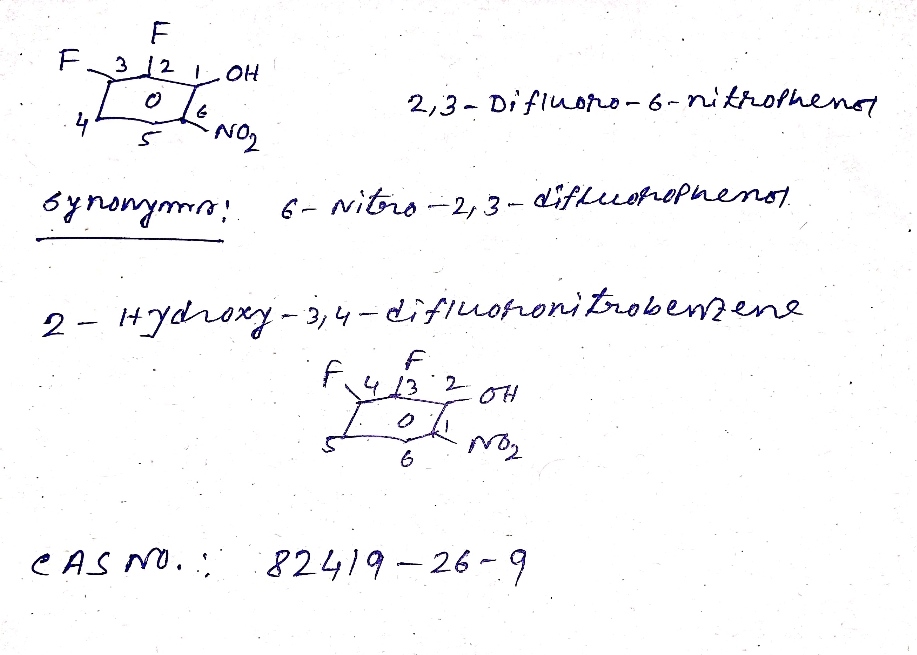 F
F 3 2 1 OH
4 0 6
5 NO2
2,3-Difluoro-6-nitrophenol
Synonyms: 6-Nitro-2,3-difluorophenol
2-Hydroxy-3,4-difluoronitrobenzene
F
F 4 3 2 OH
0 1
5 NO2
6
CAS NO.: 82419-26-9